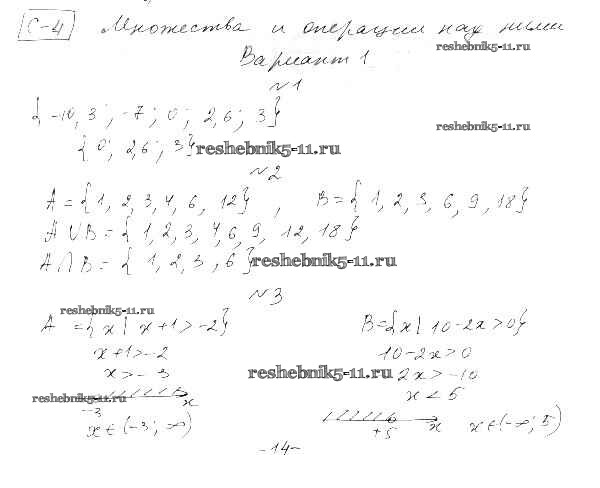 С-4 Множества и операции над ними
reshebnik5-11.ru
Вариант 1
№1
{-10,3; -7; 0; 2,6; 3}
reshebnik5-11.ru
{0; 2,6; 3} reshebnik5-11.ru
№2
A = {1, 2, 3, 4, 6, 12}, B = {1, 2, 3, 6, 9, 18}
A∪B = {1, 2, 3, 4, 6, 9, 12, 18}
A∩B = {1, 2, 3, 6} reshebnik5-11.ru
№3
reshebnik5-11.ru
A = {x | x+1>-2} B = {x | 10-2x>0}
x+1>-2 10-2x>0
x>-3 reshebnik5-11.ru 2x>-10
reshebnik5-11.ru x x<5
-3 +5 x x∈(-∞; 5)
x∈(-3; ∞)
-14-